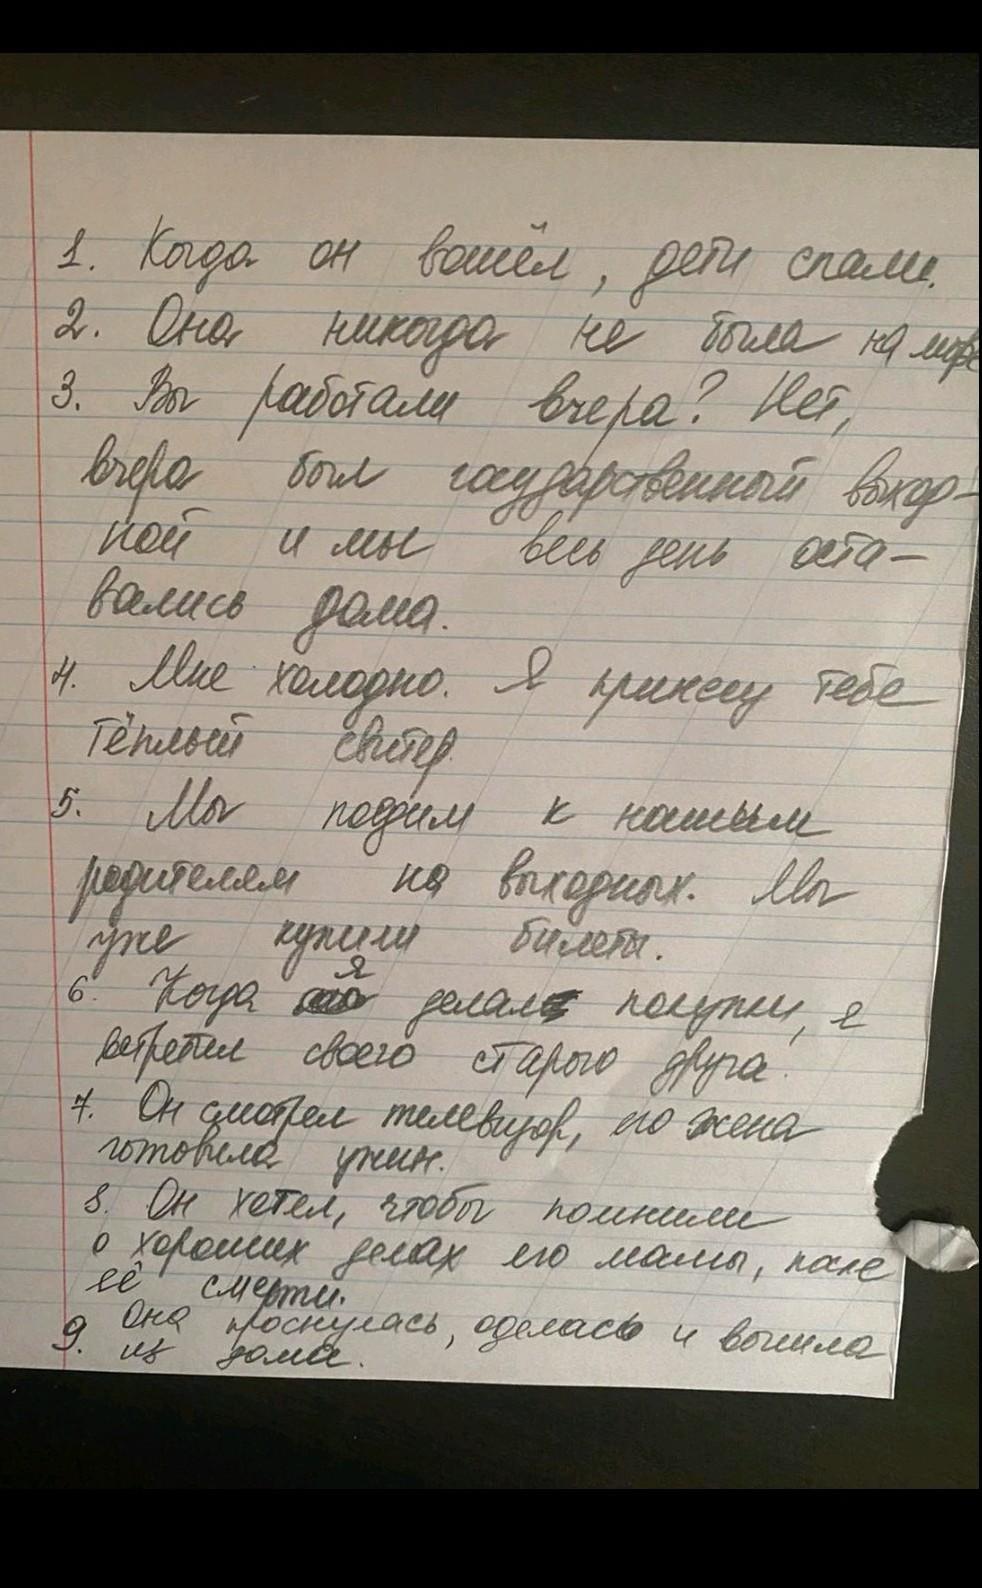 1. Когда он вошёл, дети спали.
2. Она никогда не была на море
3. Вы работали вчера? Нет,
вчера был государственный выход-
ной и мы весь день оста-
вались дома.
4. Мне холодно. Я принесу тебе
тёплый свитер.
5. Мы поедим к нашым
родителям на выходных. Мы
уже купили билеты.
6. Когда я делал покупки, я
встретил своего старого друга.
7. Он смотрел телевизор, его жена
готовила ужин.
8. Он хотел, чтобы помнили
о хороших делах его мамы, после
её смерти.
9. Она проснулась, оделась и вышла
из дома.